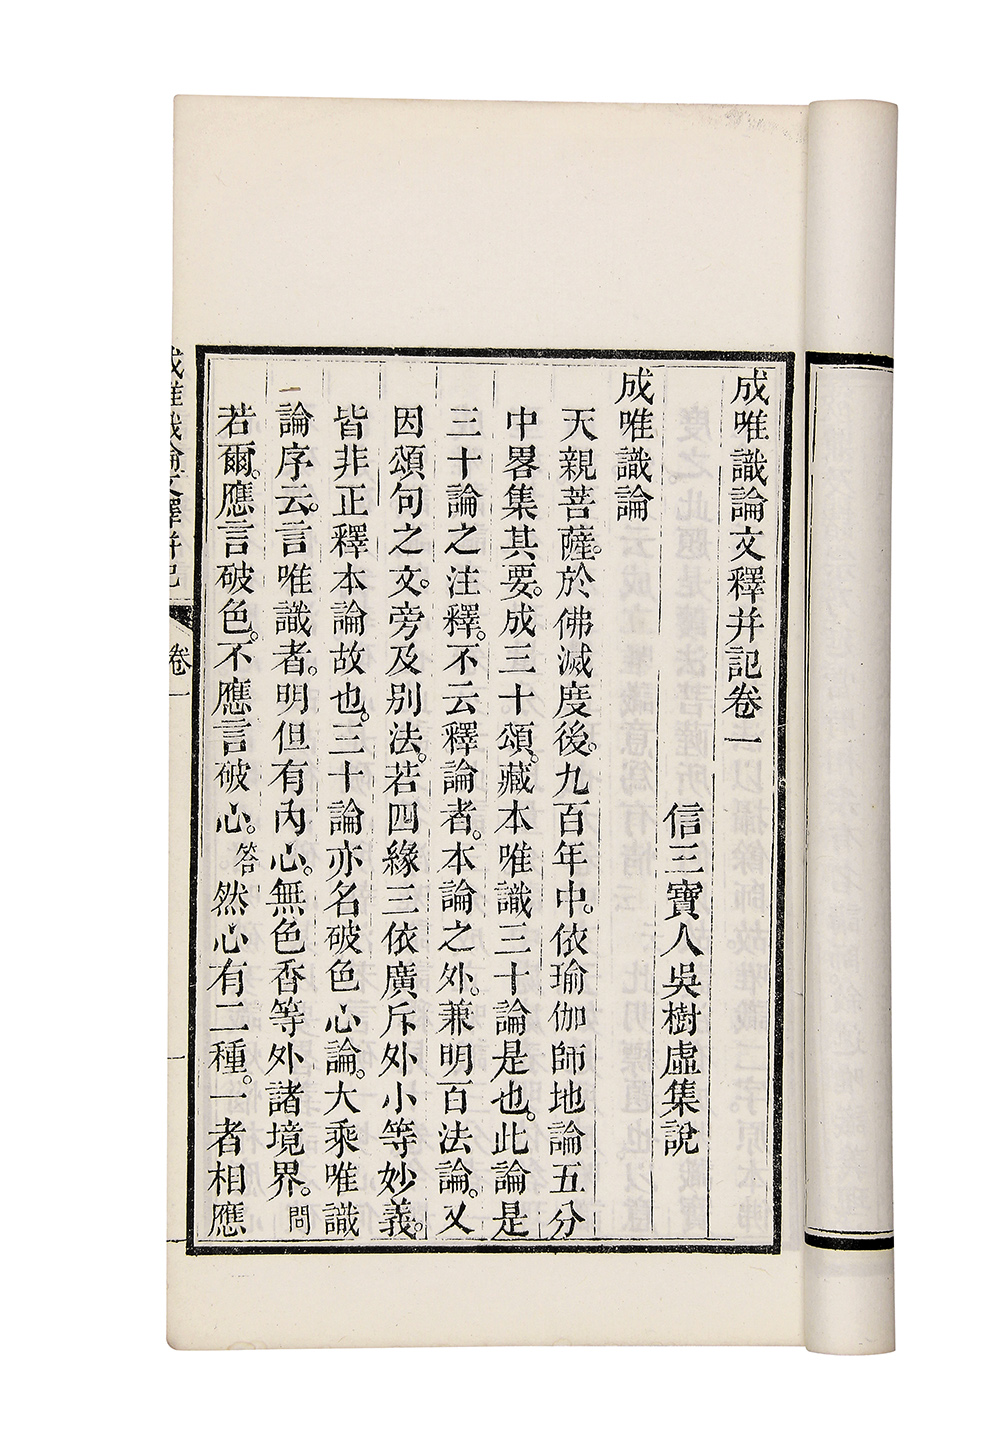 成唯識論文釋并記卷一
信三寶人吳樹虛集說
成唯識論
天親菩薩。於佛滅度後。九百年中。依瑜伽師地論五分
中畧集其要。成三十頌。藏本唯識三十論是也。此論是
三十論之注釋。不云釋論者。本論之外。兼明百法論。又
因頌句之文。旁及別法。若四緣三依廣斥外小等妙義。
皆非正釋本論故也。三十論亦名破色心論。大乘唯識
論序云。言唯識者。明但有內心。無色香等外諸境界。問
若爾。應言破色。不應言破心。答然心有二種。一者相應
成唯識論文釋并記 卷一